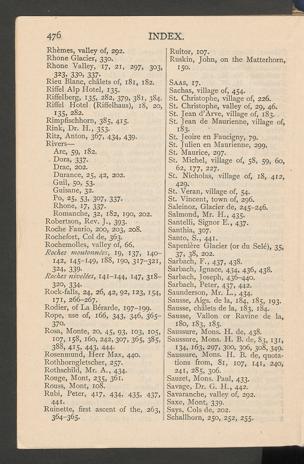 476
INDEX.
Rhèmes, valley of, 292.
Rhone Glacier, 330.
Rhone Valley, 17, 21, 297, 303,
323, 330, 337.
Rieu Blanc, châlets of, 181, 182.
Riffel Alp Hotel, 135.
Riffelberg, 135, 282, 379, 381, 384.
Riffel Hotel (Riffelhaus), 18, 20,
135, 282.
Rimpfischhorn, 385, 415.
Rink, Dr. H., 353.
Ritz, Anton, 367, 434, 439.
Rivers—
Arc, 59, 182.
Dora, 337.
Drac, 202.
Durance, 25, 42, 202.
Guil, 50, 53.
Guisane, 32.
Po, 25, 53, 307, 337.
Rhone, 17, 337.
Romanche, 32, 182, 190, 202.
Robertson, Rev. J., 393.
Roche Faurio, 200, 203, 208.
Rochefort, Col de, 363.
Rochemolles, valley of, 66.
Roches moutonnées, 19, 137, 140–
142, 145–149, 188, 190, 317–321,
324, 339.
Roches nivelées, 141–144, 147, 318–
320, 334.
Rock-falls, 24, 26, 42, 92, 123, 154,
171, 266–267.
Rodier, of La Bérarde, 197–199.
Rope, use of, 166, 343, 346, 365–
370.
Rosa, Monte, 20, 45, 93, 103, 105,
107, 158, 160, 242, 307, 365, 385,
388, 415, 443, 444.
Rosenmund, Herr Max, 440.
Rothhorngletscher, 257.
Rothschild, Mr. A., 434.
Rouge, Mont, 235, 361.
Rouss, Mont, 108.
Rubi, Peter, 417, 434, 435, 437,
441.
Ruinette, first ascent of the, 263,
364–365.
Ruitor, 107.
Ruskin, John, on the Matterhorn,
150.
SAAS, 17.
Sachas, village of, 454.
St. Christophe, village of, 226.
St. Christophe, valley of, 29, 46.
St. Jean d'Arve, village of, 183.
St. Jean de Maurienne, village of,
183.
St. Jeoire en Faucigny, 79.
St. Julien en Maurienne, 299.
St. Maurice, 297.
St. Michel, village of, 58, 59, 60,
62, 177, 227.
St. Nicholas, village of, 18, 412,
429.
St. Veran, village of, 54.
St. Vincent, town of, 296.
Saleinoz, Glacier de, 245–246.
Salmond, Mr. H., 435.
Santelli, Signor E., 437.
Santhia, 307.
Santo, S., 441.
Sapenière Glacier (or du Selé), 35,
37, 38, 202.
Sarbach, F., 437, 438.
Sarbach, Ignace, 434, 436, 438.
Sarbach, Joseph, 436–440.
Sarbach, Peter, 437, 442.
Saunderson, Mr. L., 434.
Sausse, Aigs. de la, 184, 185, 193.
Sausse, châlets de la, 183, 184.
Sausse, Vallon or Ravine de la,
180, 183, 185.
Saussure, Mons. H. de, 438.
Saussure, Mons. H. B. de, 83, 131,
134, 163, 297, 300, 306, 308, 349.
Saussure, Mons. H. B. de, quota-
tions from, 81, 107, 141, 240,
241, 285, 306.
Sauzet, Mons. Paul, 433.
Savage, Dr. G. H., 442.
Savaranche, valley of, 292.
Saxe, Mont, 339.
Says, Cols de, 202.
Schallhorn, 250, 252, 255.